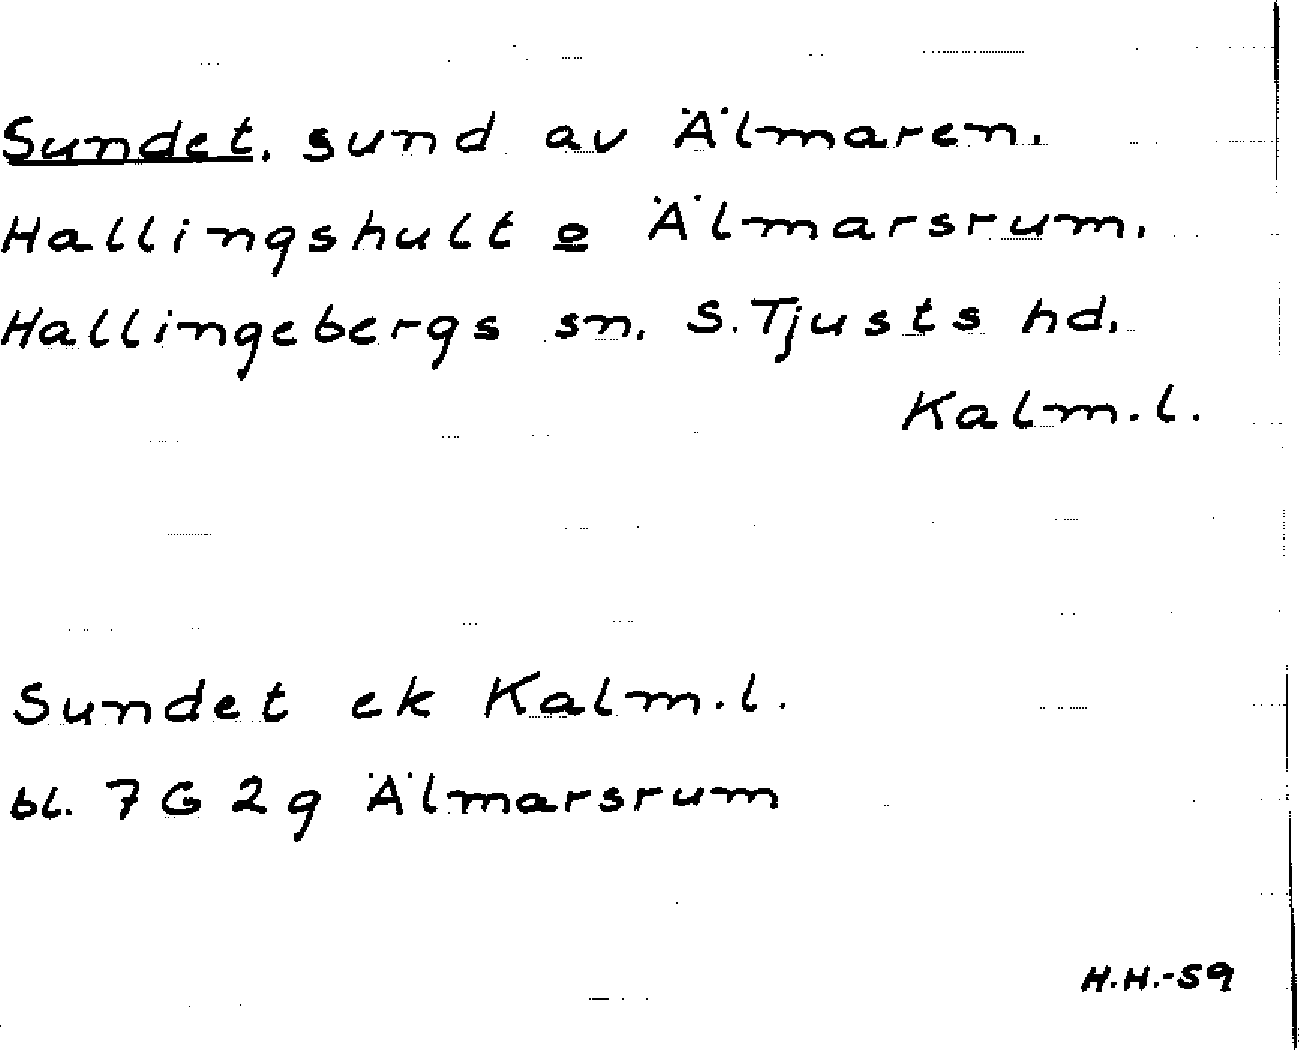 Sundet. sund av Älmaren.
Hallingshult o Älmarsrum.
Hallingebergs sn. S. Tjusts hd.
Kalm.l.
Sundet ek Kalm.l.
bl. 7 G 2g Älmarsrum
H.H.-59